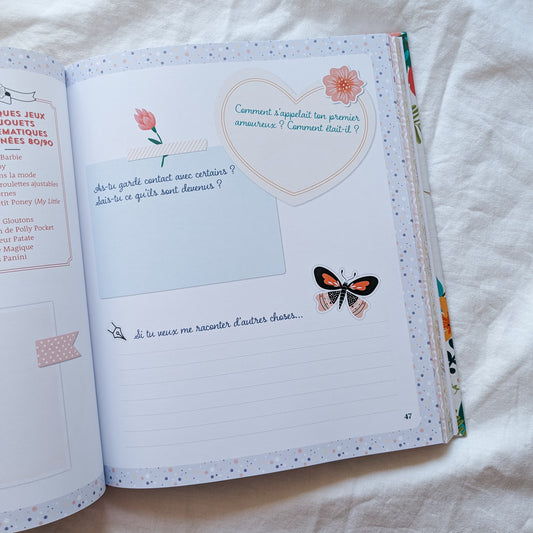 QUES JEUX
JOUETS
ÉMATIQUES
NNÉES 80/90
Barbie
oy
ns la mode
roulettes ajustables
ernes
etit Poney (My Little
Gloutons
n de Polly Pocket
eur Patate
e Magique
Panini
Comment s'appelait ton premier
amoureux ? Comment était-il ?
As-tu gardé contact avec certains ?
Sais-tu ce qu'ils sont devenus ?
Si tu veux me raconter d'autres choses...
47